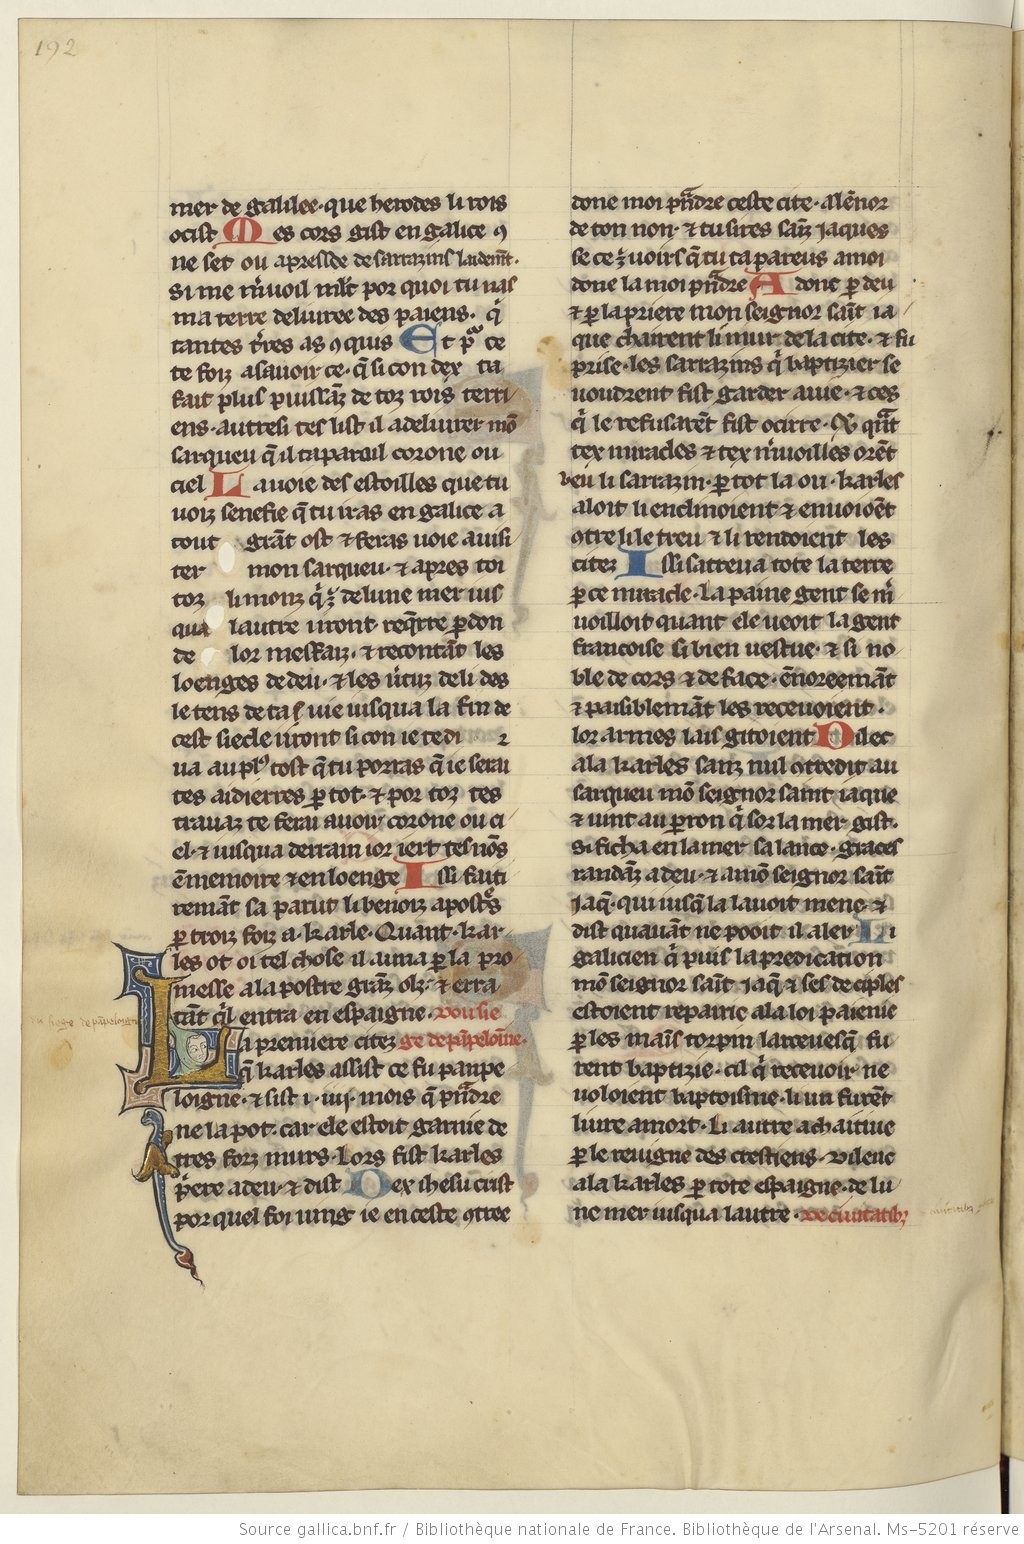 192
mer de galilee · que herodes li rois
ocist Mes cors gist en galice ꝯ
ne set ou apresse de sarrazins laidem̄t ·
Si me m̓uoil ml̃t por quoi tu nas
ma terre deliuree des paiens · q̓
tantes t̓res as ꝯquis Et pͣ ce
te foiz asauoir ce · q̃ si con dex ta
fait plus puissãz de toz rois terri
ens · autresi tes list il a deliurer mõ
sarqueu q̃ il taparail corone ou
ciel La uoie des estoilles que tu
uoiz senefie q̃ tu iras en galice a
tout grãt ost ⁊ feras uoie a uisi
ter mon sarqueu · ⁊ apres toi
toz li monz q̓ ꝫ de lune mer ius
qua lautre iront req̃rre ꝑdon
de lor mesfaiz · ⁊ recontãt les
loenges de deu · ⁊ les u̓tuz de li des
le tens de ta uie iusqua la fin de
cest siecle iront si con ie te di ꝛ
ua au plꝰ tost q̃ tu porras q̃ ie serai
tes aidierres ꝑ tot · ⁊ por toz tes
trauaz te ferai auoir corone ou ci
el · ⁊ iusqua derrain ior iert tes nõs
ẽ memoire ⁊ en loenge Issi faiti
remãt sa parut li benoiz apostͤs
ꝑ troiz foiz a · karle · Quant · kar
les ot oi tel chose il aima ꝑ la pro
messe a la postre grãz olz · ⁊ erra
tãt q̓l entra en espaigne · Dou sie
La premiere citez ge de pãpeloine ·
q̃ karles assist ce fu panpe
loigne · ⁊ sist i · iij · mois q̃ pñdre
ne la pot · car ele estoit garnie de
tres forz murs · Lors fist karles
p̓ere a deu · ⁊ dist Dex ihesu crist
por quel foi uing ie en ceste ꝯtree
done moi pñdre ceste cite · a lẽnor
de ton non · ⁊ tu sires saĩz iaques
se ce ꝫ uoirs q̃ tu ta pareus a moi
done la moi pñdre Adonc ꝑ deu
⁊ ꝑ la priere mon seignor saĩt ia
que chãirent li mur de la cite · ⁊ fu
prise · les sarrazins q̓ baptizier se
uoudrent fist garder a uie · ⁊ ces
q̓ le refusarẽt fist ocirre · Et qñt
tex miracles ⁊ tex m̓uoilles orẽt
veu li sarrazin · ꝑ tot la ou · karles
aloit li enclinoient ⁊ enuoioẽt
ꝯtre li le treu ⁊ li rendoient les
citez Issi satreua tote la terre
ꝑ ce miracle · La paine gent se m̓
uoilloit quant ele ueoit la gent
francoise si bien uestue · ⁊ si no
ble de cors ⁊ de face · ẽnoreemãt
⁊ paisiblemãt les receuoient ·
lor armes lais gitoient Dilec
ala karles sanz nul ꝯtredit au
sarqueu mõ seignor saint iaque
⁊ uint au perron q̓ sor la mer gist ·
Si ficha en la mer sa lance · graces
randãz a deu · ⁊ a mõ seignor saĩt
iaq̃ · qui iusq̃ la lauoit mene ⁊
dist quauãt ne pooit il aler Li
galicien q̓ puis la predication
mõ seignor saĩt iaq̃ ⁊ ses deciples
estoient repairie a la loi paienie
ꝑ les maĩs torpin larceuesq̃ fu
rent baptizie · cil q̓ receuoir ne
uoloient baptoisme · li un furẽt
liure a mort · Li autre achaitiue
ꝑ le reuigne des crestiens · Dileuc
ala karles ꝑ tote espaigne · de lu
ne mer iusqua lautre · De ciuitatibꝫ
Source gallica.bnf.fr / Bibliothèque nationale de France. Bibliothèque de l'Arsenal. Ms-5201 réserve